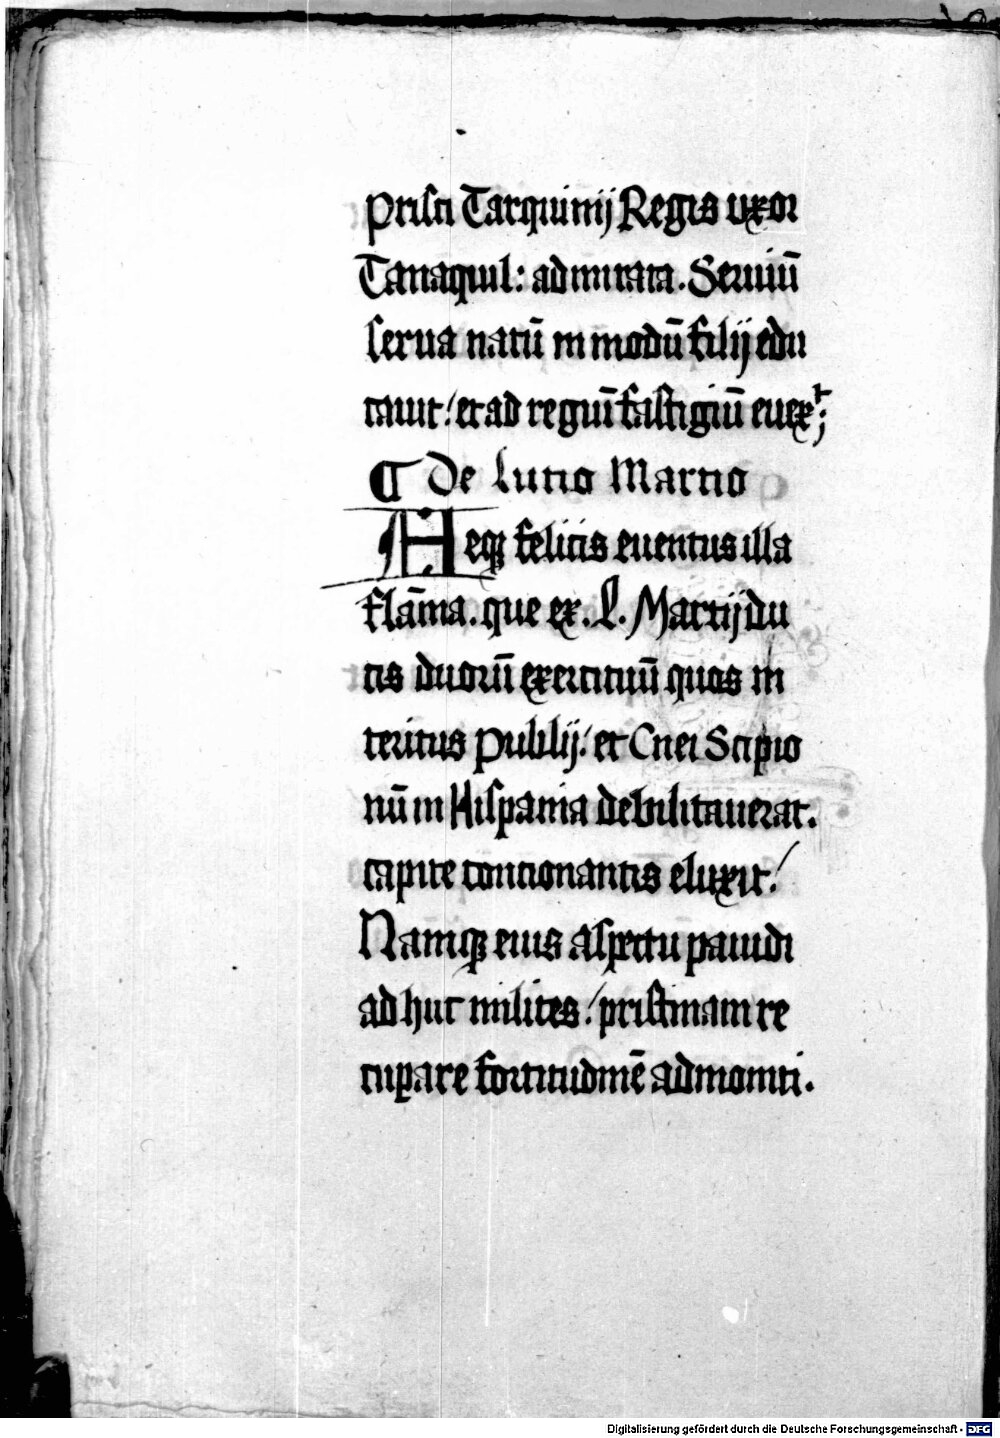 Prisci Tarquinij Regis uxor
Tanaquil: admirata. Seruiū
serua natū in modū filij edu
cauit! et ad regiū fastigiū euexᵗ;
¶ De Lucio Martio
Aeq̃ felicis euentus illa
flāma. que ex. L. Martij du
cis duorū exercituū quos in
teritus Publij! et Cnei Scipio
nū in Hispania debilitauerat.
capite concionantis eluxit!
Nam̄q̃ eius aspectu pauidi
ad huc milites! pristinam re
cuꝑare fortitudinē admoniti.
Digitalisierung gefördert durch die Deutsche Forschungsgemeinschaft - DFG